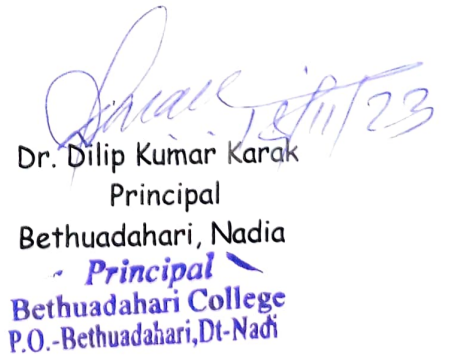 18/11/23
Dr. Dilip Kumar Karak
Principal
Bethuadahari, Nadia
Principal
Bethuadahari College
P.O.-Bethuadahari,Dt-Nadi